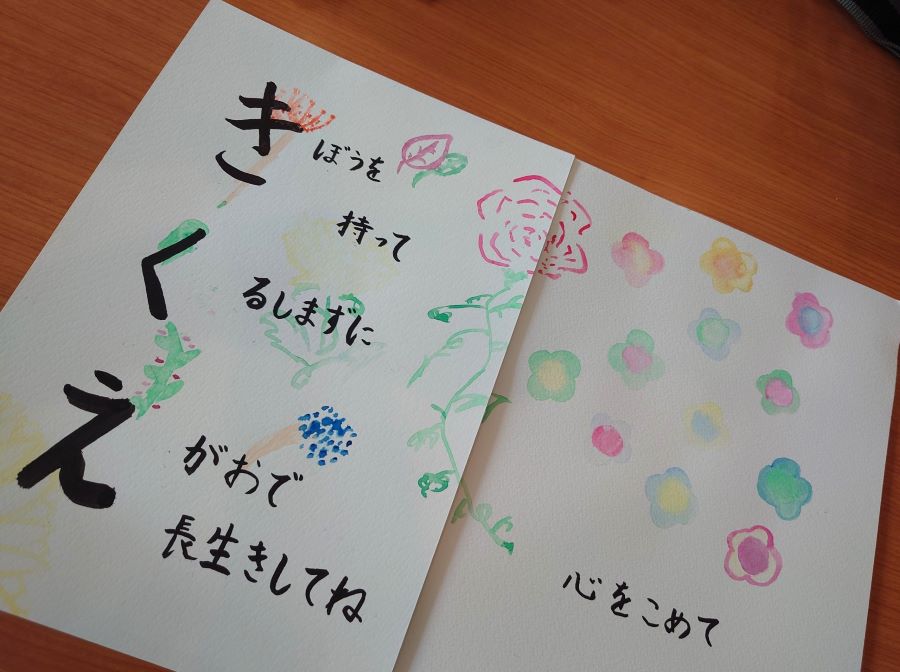 きぼうを
持って
くるしまずに
えがおで
長生きしてね
心をこめて